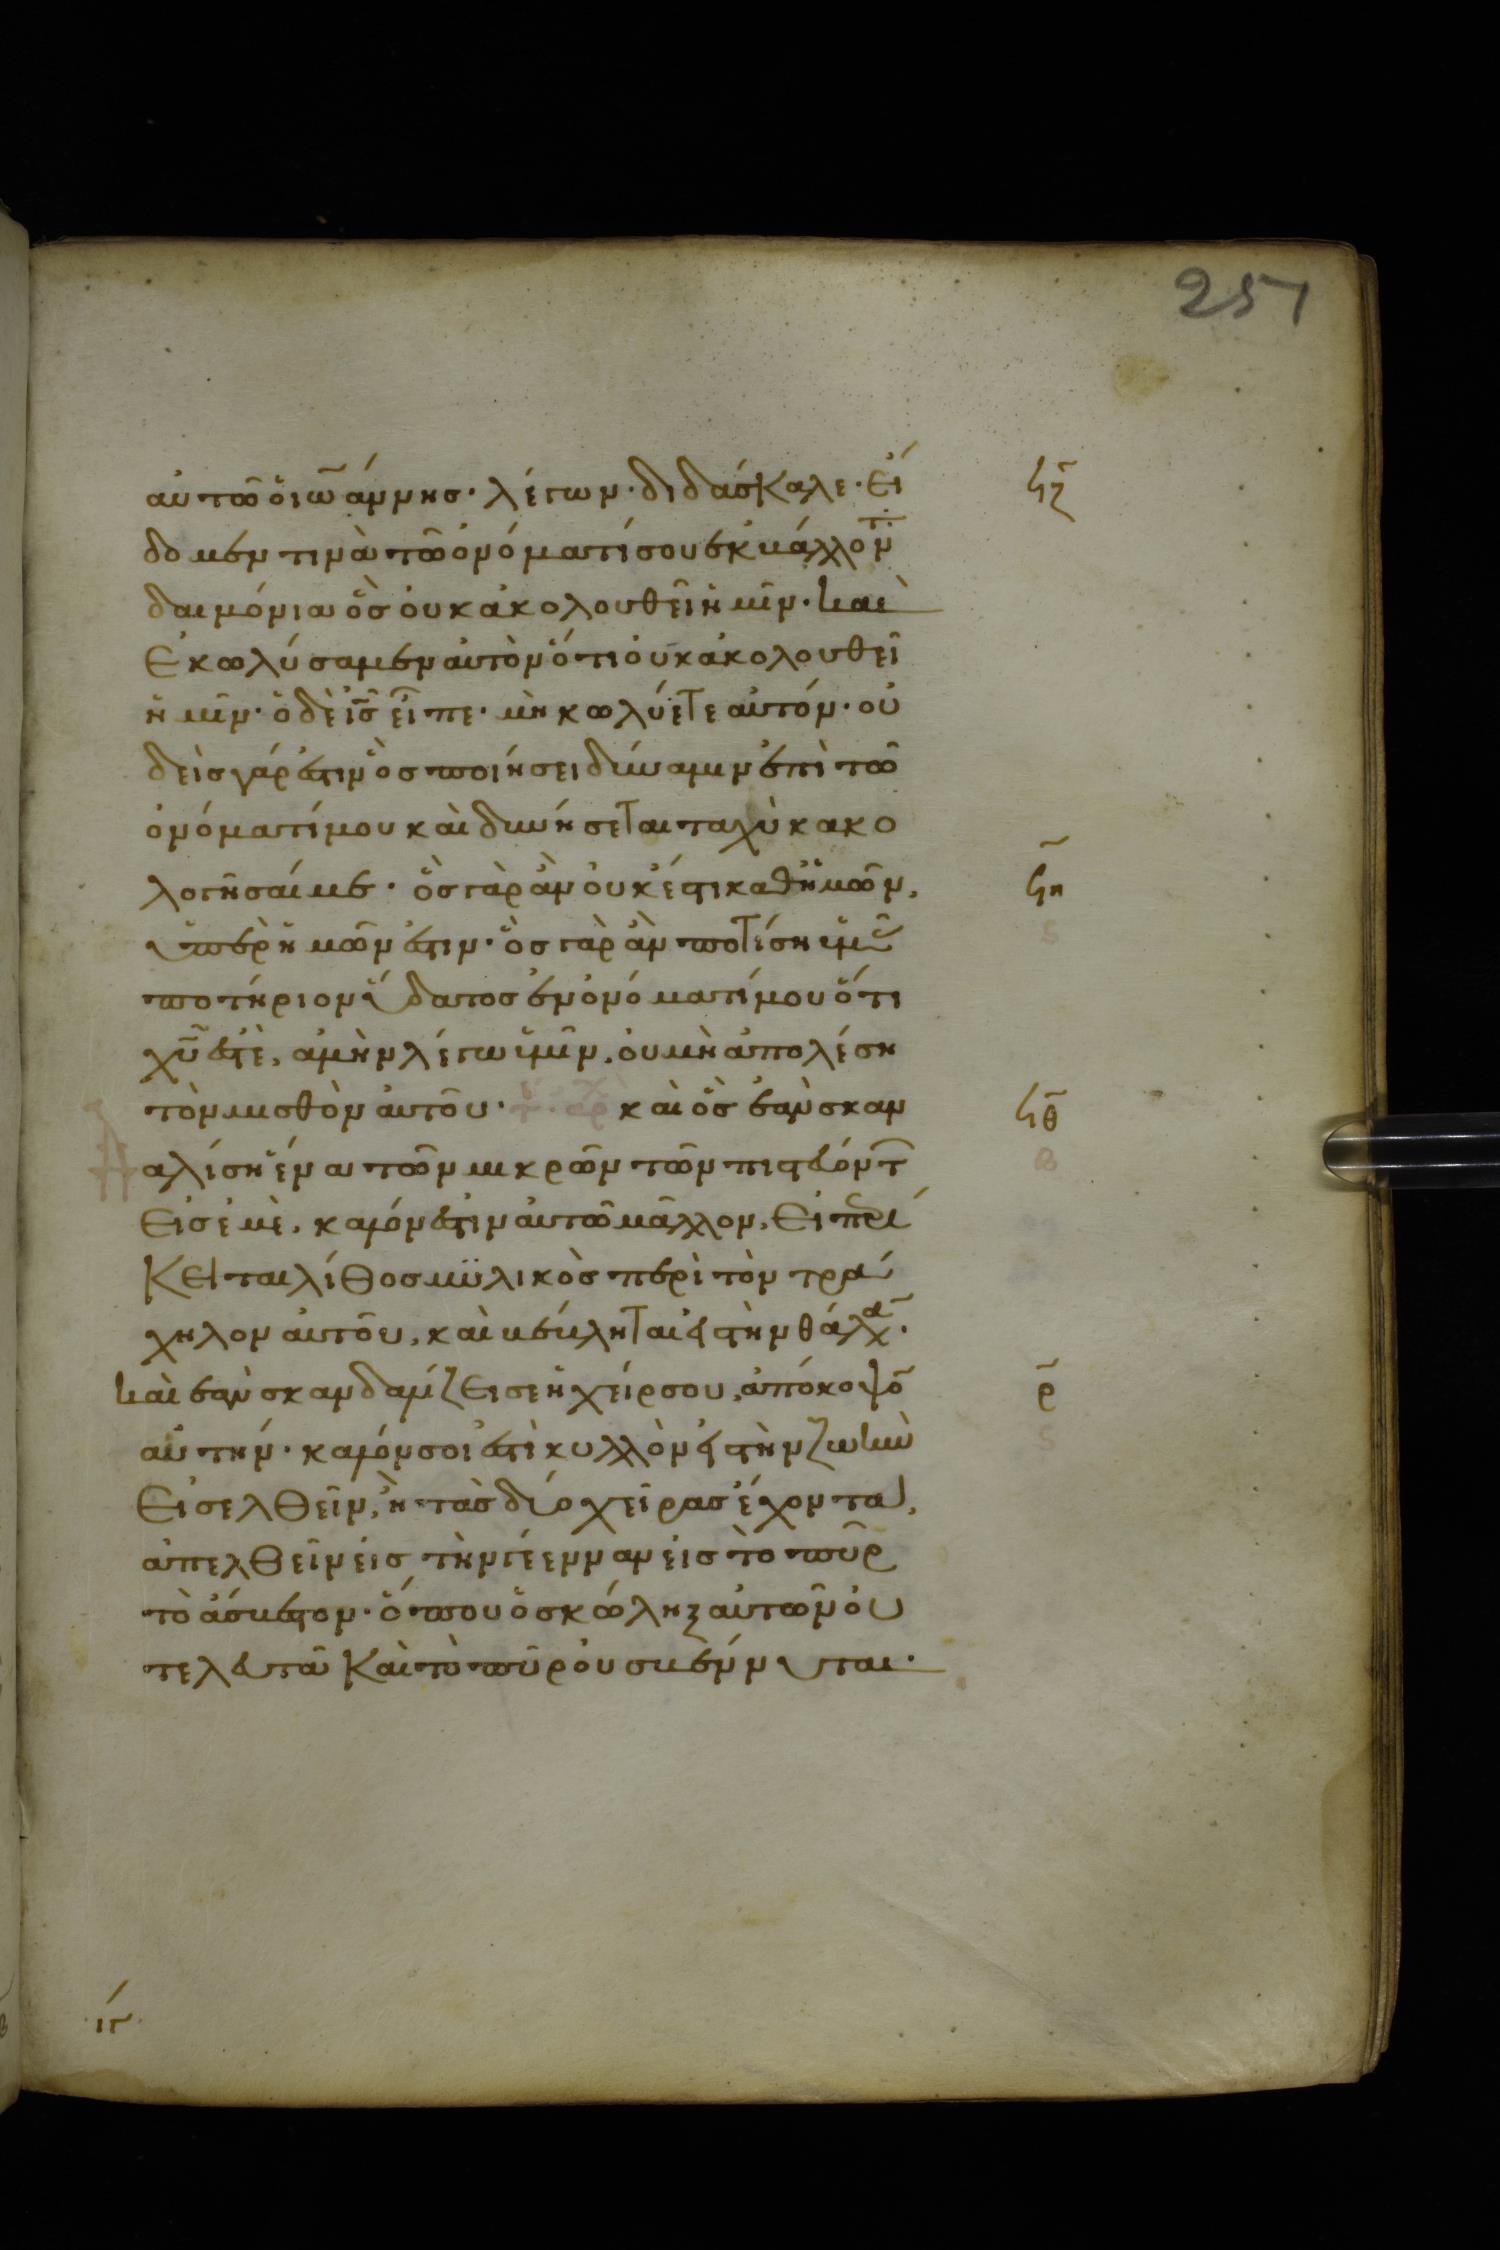 251
αὐτῶ ὁ ἰω̃άννησ· λέγων· διδάσκαλε· εἴ ϟζ̃
δομεν τινὰ τῶ ὀνόματί σου ἐκβάλλοντ̅
δαιμόνια ὃσ οὐκ ἀκολουθεῖ ἡμῖν· καὶ
ἐκωλύσαμεν αὐτὸν ὅτι οὐκ ἀκολουθεῖ
ἡμῖν· ὁ δὲ ἰ̅σ̅ εἶπε· μὴ κωλύετε αὐτόν· οὐ
δεὶσ γάρ ἐστιν ὃσ ποιήσει δύναμιν ἐπὶ τῶ
ὀνόματί μου καὶ δυνήσεται ταχὺ κακο
λογῆσαί με· ὃσ γὰρ ἂν οὐκ ἔστι καθ ἡμῶν, ϟη̃
ὑπὲρ ἡμῶν ἐστιν· ὃσ γὰρ ἂν ποτίση ὑμᾶ
ποτήριον ὕδατοσ ἐν ὀνόματί μου ὅτι
χ̅υ̅ ἐστὲ, ἀμὴν λέγω ὑμῖν, οὐ μὴ ἀπολέση
τὸν μισθὸν αὐτοῦ· καὶ ὃσ ἐὰν σκαν ϟθ̃
αλίση ἕνα τῶν μικρῶν τῶν πιστευόντ̅
εἰσ ἐμὲ, καλόν ἐστιν αὐτῶ μᾶλλον, εἰ περί
κειται λίθοσ μϋλικὸσ περὶ τὸν τρά
χηλον αὐτοῦ, καὶ βέβληται εἰς τὴν θάλα̅·
καὶ ἐὰν σκανδαλίζει σε ἡ χείρ σου, ἀπόκοψο̅ ρ̃
αὐτήν· καλόν σοι ἐστὶ κυλλὸν εἰς τὴν ζωὴν
εἰσελθεῖν, ἢ τὰσ δύο χεῖρασ ἔχοντα,
ἀπελθεῖν εἰσ τὴν γέενναν εἰσ τὸ πῦρ
τὸ ἄσβεστον· ὅπου ὁ σκώληξ αὐτῶν οὐ
τελευτᾶ καὶ τὸ πῦρ οὐ σβέννυται·
ιγ